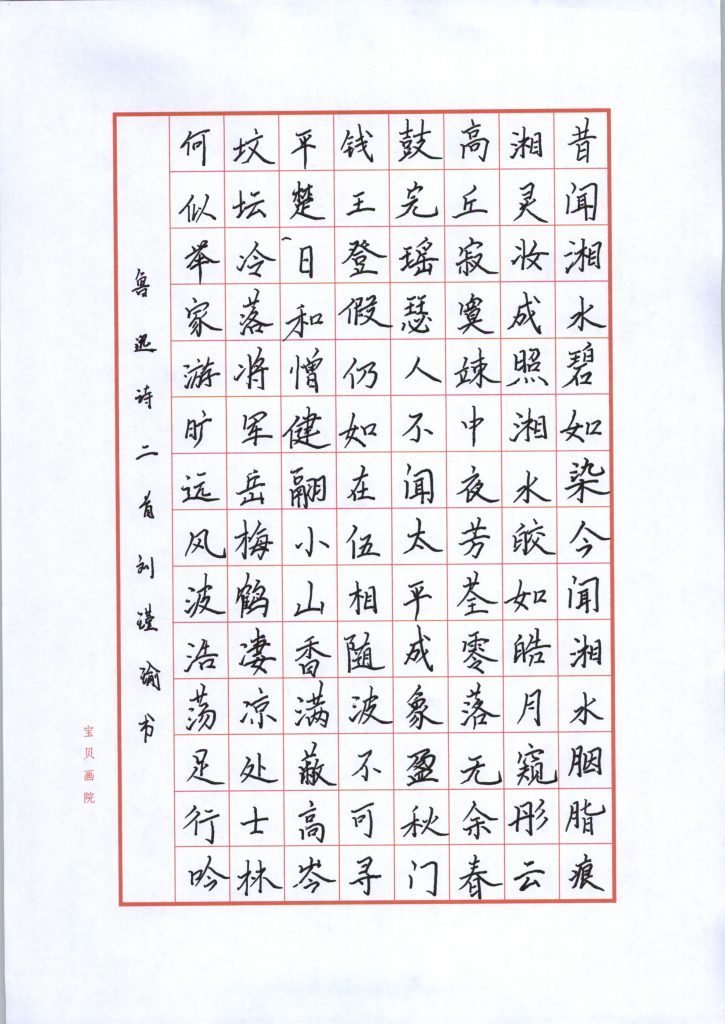 昔闻湘水碧如染今闻湘水胭脂痕
湘灵妆成照湘水皎如皓月窥彤云
高丘寂寞竦中夜芳荃零落无余春
鼓完瑶瑟人不闻太平成象盈秋门
钱王登假仍如在伍相随波不可寻
平楚日和憎健翮小山香满蔽高岑
坟坛冷落将军岳梅鹤凄凉处士林
何似举家游旷远风波浩荡足行吟
鲁迅诗二首刘瑾瑜书
宝贝画院